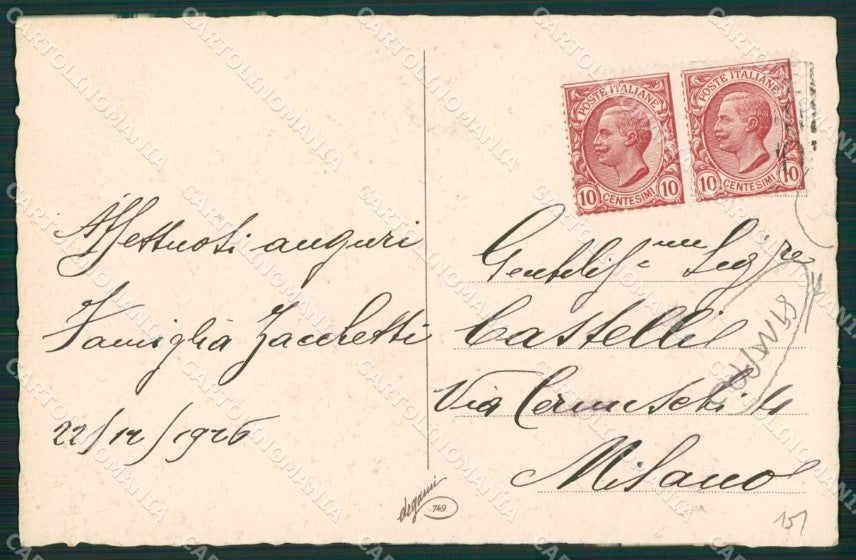 Affettuosi auguri
Famiglia Zacchetti
22/12/1926
POSTE ITALIANE
10 CENTESIMI 10
POSTE ITALIANE
10 CENTESIMI 10
Gentiliss.ma Sig.re
Castelli
Via Cernuschi 4
Milano
degami
749
157
CARTOLINOMANIA